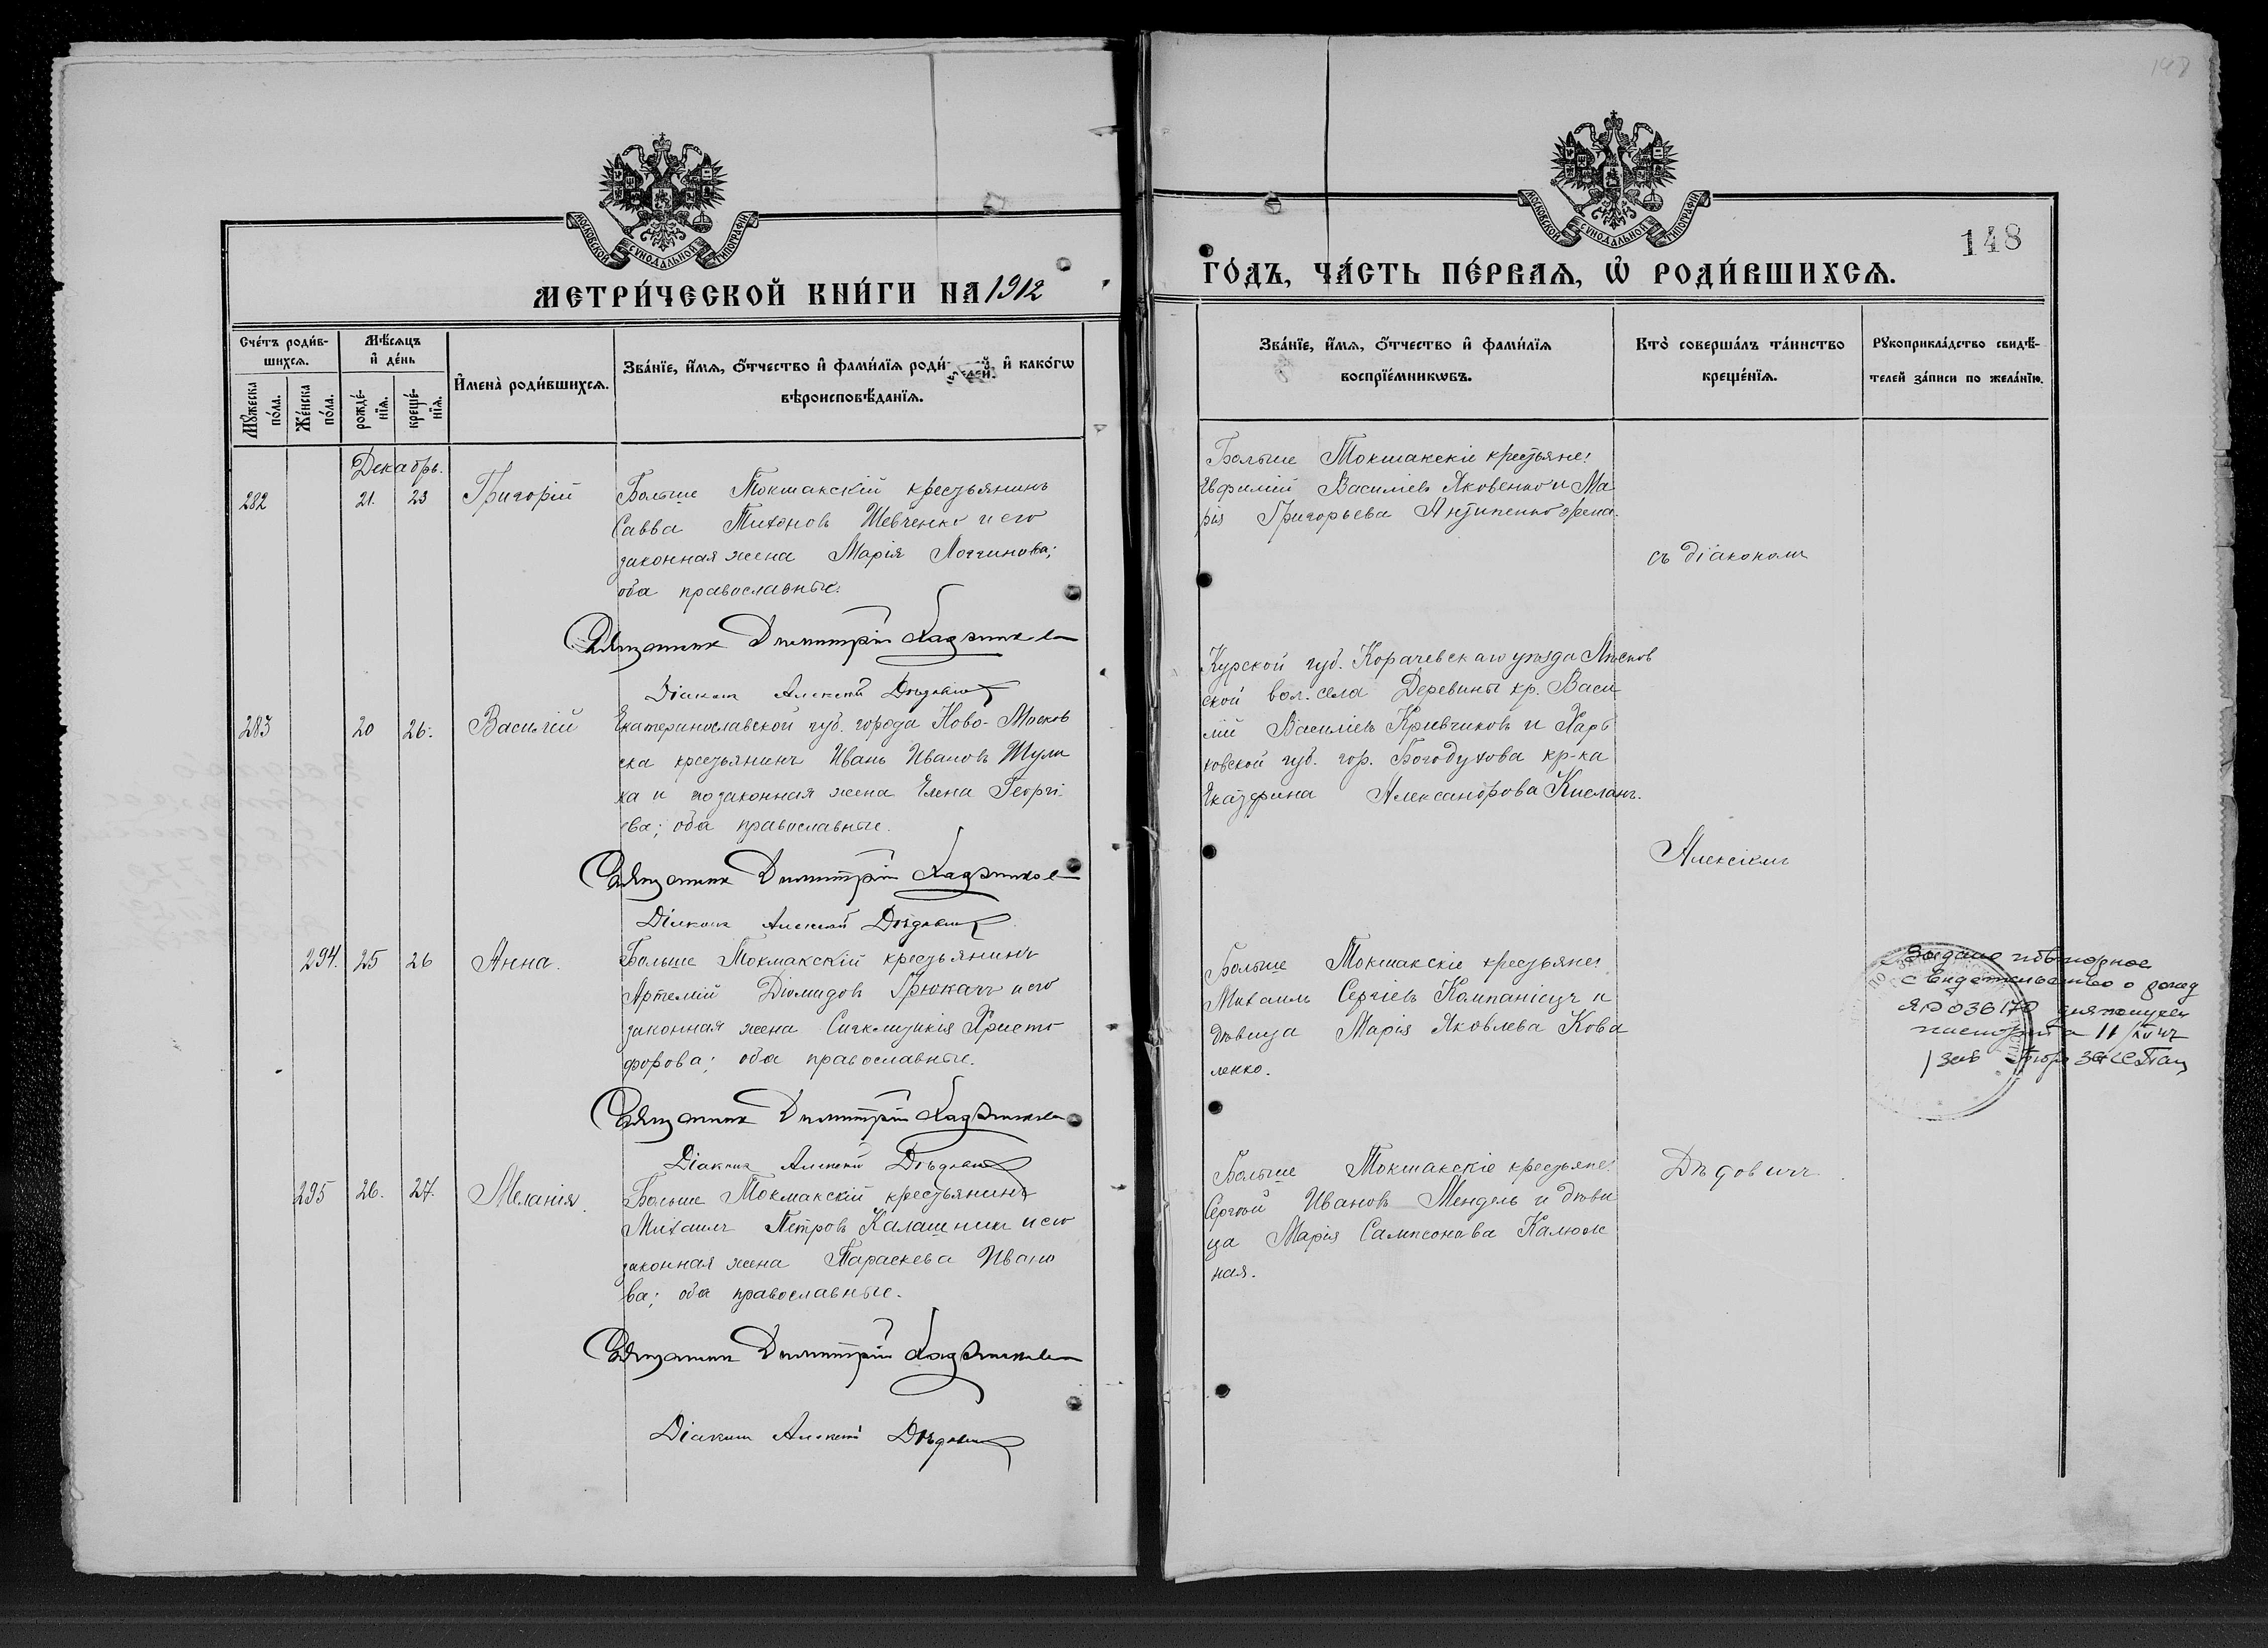 148
МОСКОВСКОЙ СѴНОДАЛЬНОЙ ТИПОГРАФІИ
МОСКОВСКОЙ СѴНОДАЛЬНОЙ ТИПОГРАФІИ
148
МЕТРИ́ЧЕСКОЙ КНИ́ГИ НА 1912
ГО́ДЪ, ЧА́СТЬ ПЕ́РВАЯ, Ѽ РОДИ́ВШИХСЯ.
Сче́тъ роди́в-
шихся.
Мꙋ́жеска по́ла.
Же́нска по́ла.
Мѣ́сяцъ и де́нь
рожде́-нїя.
креще́-нїя.
И҆мена̀ роди́вшихся.
Зва́нїе, и҆́мя, ѻ҆́тчество и҆ фами́лїя роди́телей, и҆ како́гѡ
вѣроисповѣ́данїя.
Зва́нїе, и҆́мя, ѻ҆́тчество и҆ фами́лїя
воспрїе́мникѡвъ.
Кто̀ соверша́лъ та́инство
креще́нїя.
Рꙋкоприкла́дство свидѣ́-
телей за́писи по жела́нїю.
Декабрь.
282 21. 23 Григорій
Больше Токмакскій крестьянинъ
Савва Тихоновъ Шевченко и его
законная жена Марія Логгинова;
оба православные.
Священникъ Димитрій
Діаконъ Алексѣй Дѣдовичъ
Больше Токмакскіе крестьяне:
Евфимій Василіевъ Яковенко и Ма
рія Григорьева Антипенко жена.
съ діакономъ
283 20 26. Василій
Екатеринославской губ. города Ново-Москов
ска крестьянинъ Иванъ Ивановъ Шули
ка и его законная жена Елена Георгі
ева; оба православные.
Священникъ Димитрій
Діаконъ Алексѣй Дѣдовичъ
Курской губ. Корачевскаго уѣзда
ской вол. села Деревины кр. Васи
лій Василіевъ Кривчиковъ и Харь
ковской губ. гор. Богодухова кр-ка
Екатерина Александрова
Алексіемъ
294. 25 26 Анна.
Больше Токмакскій крестьянинъ
Артемій Діомидовъ Грюкачъ и его
законная жена Сигклитикія Христо
форова; оба православные.
Священникъ Димитрій
Діаконъ Алексѣй Дѣдовичъ
Больше Токмакскіе крестьяне:
Михаилъ Сергіевъ Компаніецъ и
дѣвица Марія Яковлева Кова
ленко.
Выдано повторное
свидетельство о рожд
ЯР 036170 для получен
паспорта
295 26. 27. Меланія.
Больше Токмакскій крестьянинъ
Михаилъ Петровъ Калашникъ и его
законная жена Параскева Ивано
ва; оба православные.
Священникъ Димитрій
Діаконъ Алексѣй Дѣдовичъ
Больше Токмакскіе крестьяне:
Сергѣй Ивановъ Мендель и дѣви
ца Марія Сампсонова Калюж
ная.
Дѣдовичъ.